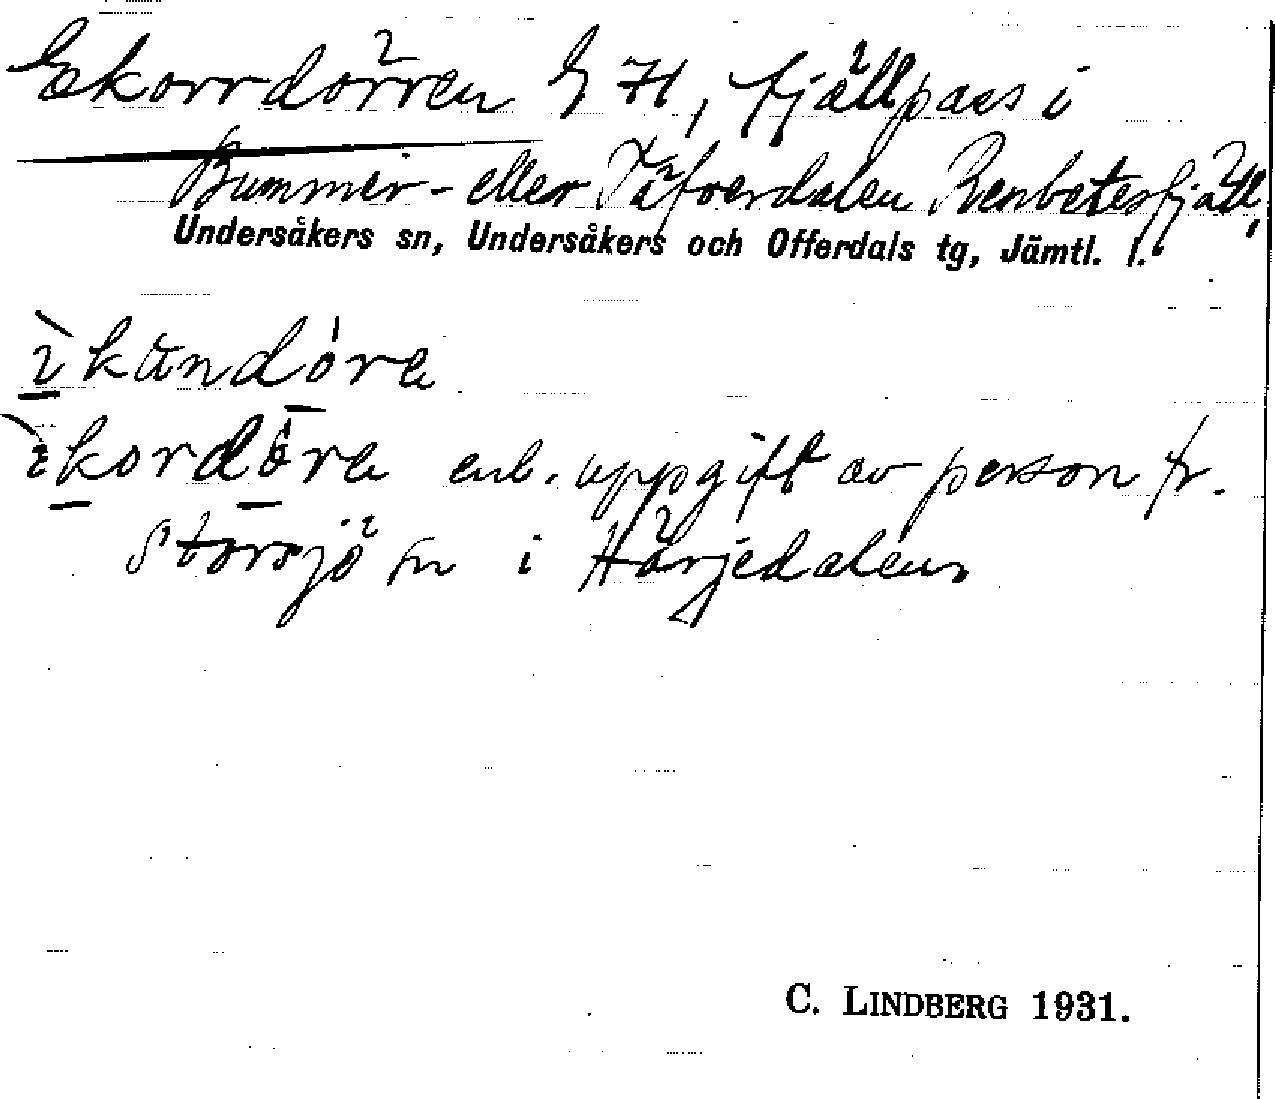 Ekorrdörren G 71, fjällpass i
Bummer- eller Täfverdalen Renbetesfjäll,
Undersåkers sn, Undersåkers och Offerdals tg, Jämtl. l.
ìkundö́ra
ìkordö̀ra enl. uppgift av person fr.
Storsjö sn i Härjedalen
C. LINDBERG 1931.